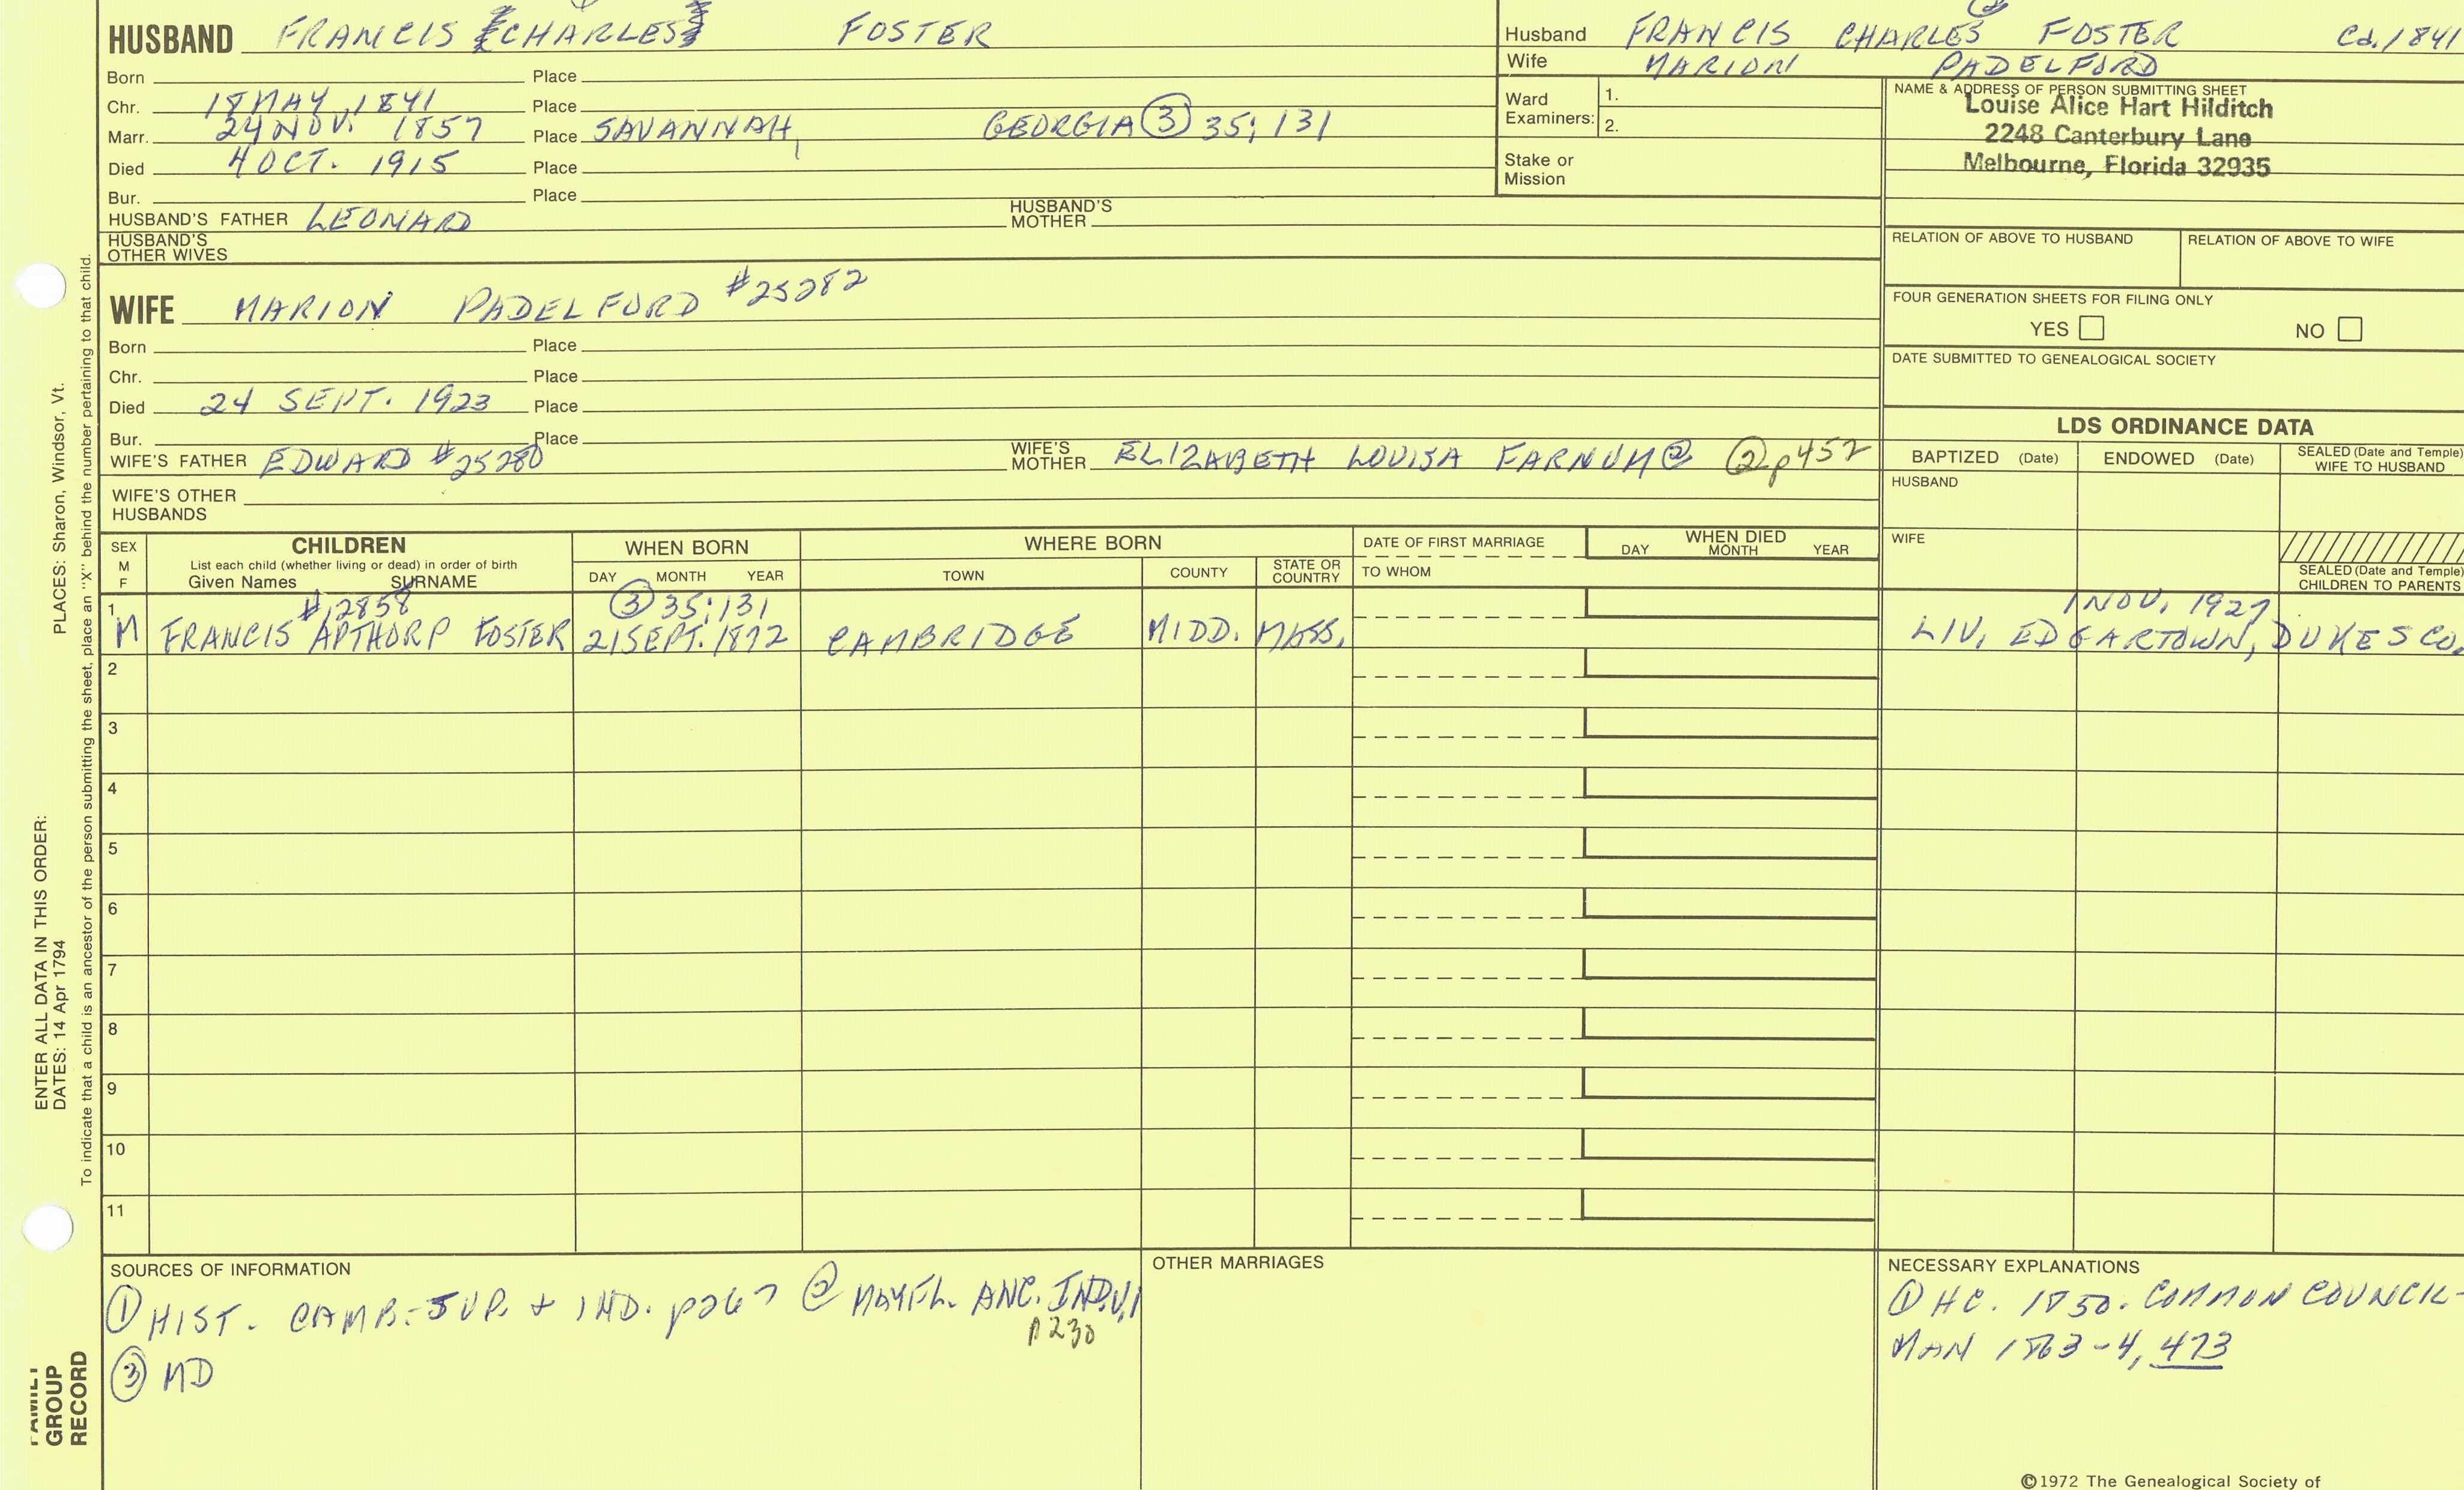 HUSBAND FRANCIS CHARLES FOSTER
Born Place
Chr. 18 MAY, 1841 Place
Marr. 24 NOV. 1857 Place SAVANNAH, GEORGIA ③ 35; 131
Died 4 OCT. 1915 Place
Bur. Place
HUSBAND'S FATHER LEONARD HUSBAND'S MOTHER
HUSBAND'S OTHER WIVES
Husband FRANCIS CHARLES FOSTER Cd. 1841
Wife MARION PADELFORD
Ward Examiners: 1.
2.
Stake or Mission
NAME & ADDRESS OF PERSON SUBMITTING SHEET
Louise Alice Hart Hilditch
2248 Canterbury Lane
Melbourne, Florida 32935
RELATION OF ABOVE TO HUSBAND RELATION OF ABOVE TO WIFE
FOUR GENERATION SHEETS FOR FILING ONLY
YES NO
DATE SUBMITTED TO GENEALOGICAL SOCIETY
WIFE MARION PADELFORD #25282
Born Place
Chr. Place
Died 24 SEPT. 1923 Place
Bur. Place
WIFE'S FATHER EDWARD #25280 WIFE'S MOTHER ELIZABETH LOUISA FARNUM② ②p452
WIFE'S OTHER HUSBANDS
LDS ORDINANCE DATA
BAPTIZED (Date) ENDOWED (Date) SEALED (Date and Temple) WIFE TO HUSBAND
HUSBAND
WIFE
SEALED (Date and Temple) CHILDREN TO PARENTS
SEX M F
CHILDREN
List each child (whether living or dead) in order of birth
Given Names SURNAME
WHEN BORN
DAY MONTH YEAR
WHERE BORN
TOWN COUNTY STATE OR COUNTRY
DATE OF FIRST MARRIAGE
TO WHOM
WHEN DIED
DAY MONTH YEAR
1 #12858 ③ 35:131 1 NOV. 1927
M FRANCIS APTHORP FOSTER 21 SEPT. 1872 CAMBRIDGE MIDD. MASS. LIV. EDGARTOWN, DUKES CO.
2
3
4
5
6
7
8
9
10
11
SOURCES OF INFORMATION
① HIST. CAMB.-SUP. & IND. p267 ② MAYFL. ANC. IND.V.1
p230
③ MD
OTHER MARRIAGES
NECESSARY EXPLANATIONS
① HC. 1850. COMMON COUNCIL-
MAN 1863-4, 473
©1972 The Genealogical Society of
PLACES: Sharon, Windsor, Vt.
To indicate that a child is an ancestor of the person submitting the sheet, place an "X" behind the number pertaining to that child.
ENTER ALL DATA IN THIS ORDER:
DATES: 14 Apr 1794
FAMILY
GROUP
RECORD